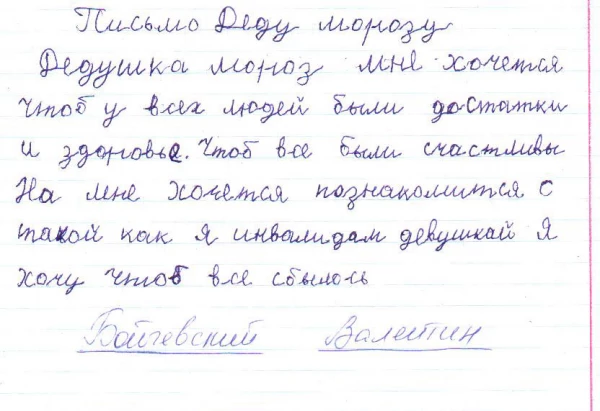 Письмо Деду морозу
Дедушка мороз мне хочется
чтоб у всех людей были достатки
и здоровье. Чтоб все были счастливы
На мне хочется познакомится с
такой как я инвалидам девушкай Я
хочу чтоб все сбылось
Бойчевский Валетин